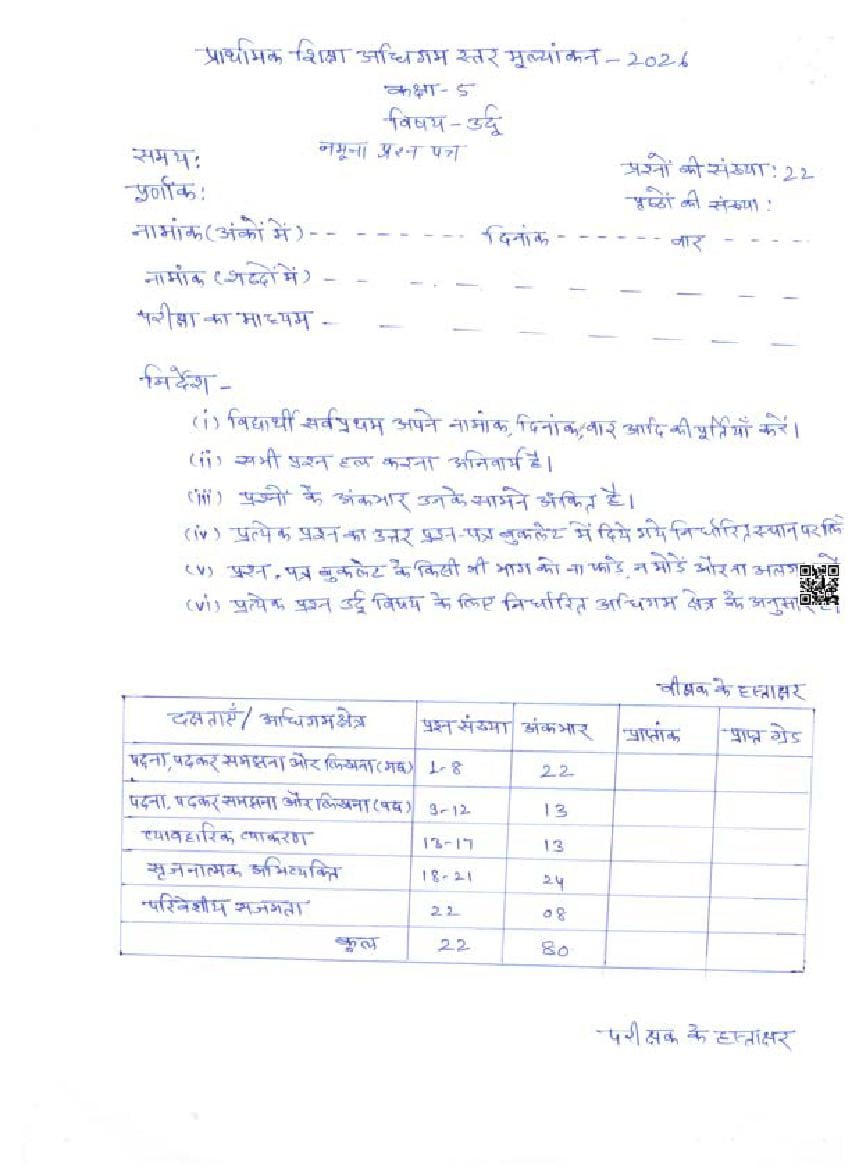 प्राथमिक शिक्षा अधिगम स्तर मूल्यांकन - 2026
कक्षा - 5
विषय - उर्दू
नमूना प्रश्न पत्र
समय:
प्रश्नों की संख्या: 22
पूर्णांक:
पृष्ठों की संख्या:
नामांक (अंकों में) - - - - - - - - - दिनांक - - - - - - - वार - - - - -
नामांक (शब्दों में) - - - - - - - - -
परीक्षा का माध्यम - - - - - - -
निर्देश -
(i) विद्यार्थी सर्वप्रथम अपने नामांक, दिनांक, वार आदि की पूर्तियाँ करें।
(ii) सभी प्रश्न हल करना अनिवार्य है।
(iii) प्रश्नों के अंकभार उनके सामने अंकित है।
(iv) प्रत्येक प्रश्न का उत्तर प्रश्न-पत्र बुकलेट में दिये गये निर्धारित स्थान पर लि
(v) प्रश्न-पत्र बुकलेट के किसी भी भाग को ना फाडे, न मोडें और ना अलग
(vi) प्रत्येक प्रश्न उर्दू विषय के लिए निर्धारित अधिगम क्षेत्र के अनुसार है।
वीक्षक के हस्ताक्षर
दक्षताएँ/अधिगम क्षेत्र प्रश्न संख्या अंकभार प्राप्तांक प्राप्त ग्रेड
पढना, पढकर समझना और लिखना (गद्य) 1-8 22
पढना, पढकर समझना और लिखना (पद्य) 9-12 13
व्यावहारिक व्याकरण 13-17 13
सृजनात्मक अभिव्यक्ति 18-21 24
परिवेशीय सजगता 22 08
कुल 22 80
परीक्षक के हस्ताक्षर